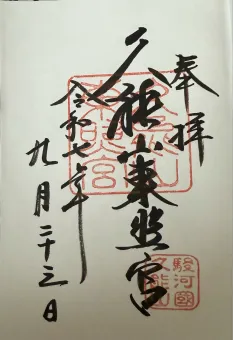 奉拝
久能山東照宮
令和七年
九月二十三日
駿河國
久能山